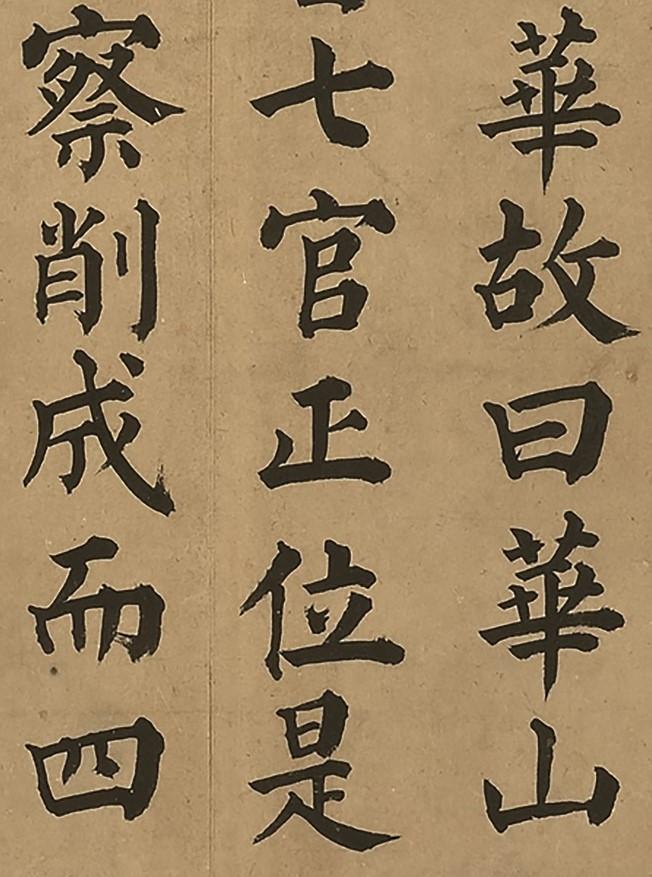 華故曰華山
七官正位是
察削成而四